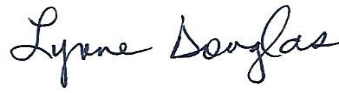 Lynne Douglas